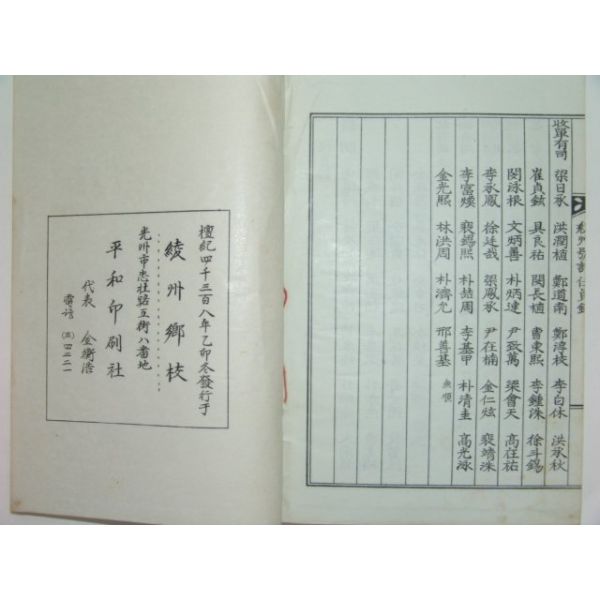 綾州誌 任員錄
收單有司 梁日承 洪潤植 鄭道南 鄭淳枝 李白休 洪承秋
崔貞鉉 具良祐 閔長植 曹東熙 李鍾洙 徐斗錫
閔泳根 文炳善 朴炳連 尹致萬 梁會天 高在祐
李承鳳 徐廷哉 梁鳳承 尹在楠 金仁炫 裵靖洙
李富燮 裵錫熙 朴喆周 李基甲 朴清圭 高光泳
金光熙 林洪周 朴濟允 邢善基 無順
檀紀四千三百八年乙卯冬發行于
綾州鄉校
光州市忠壯路五街八番地
平和印刷社
代表 金衡浩
電話 (三)四二二一